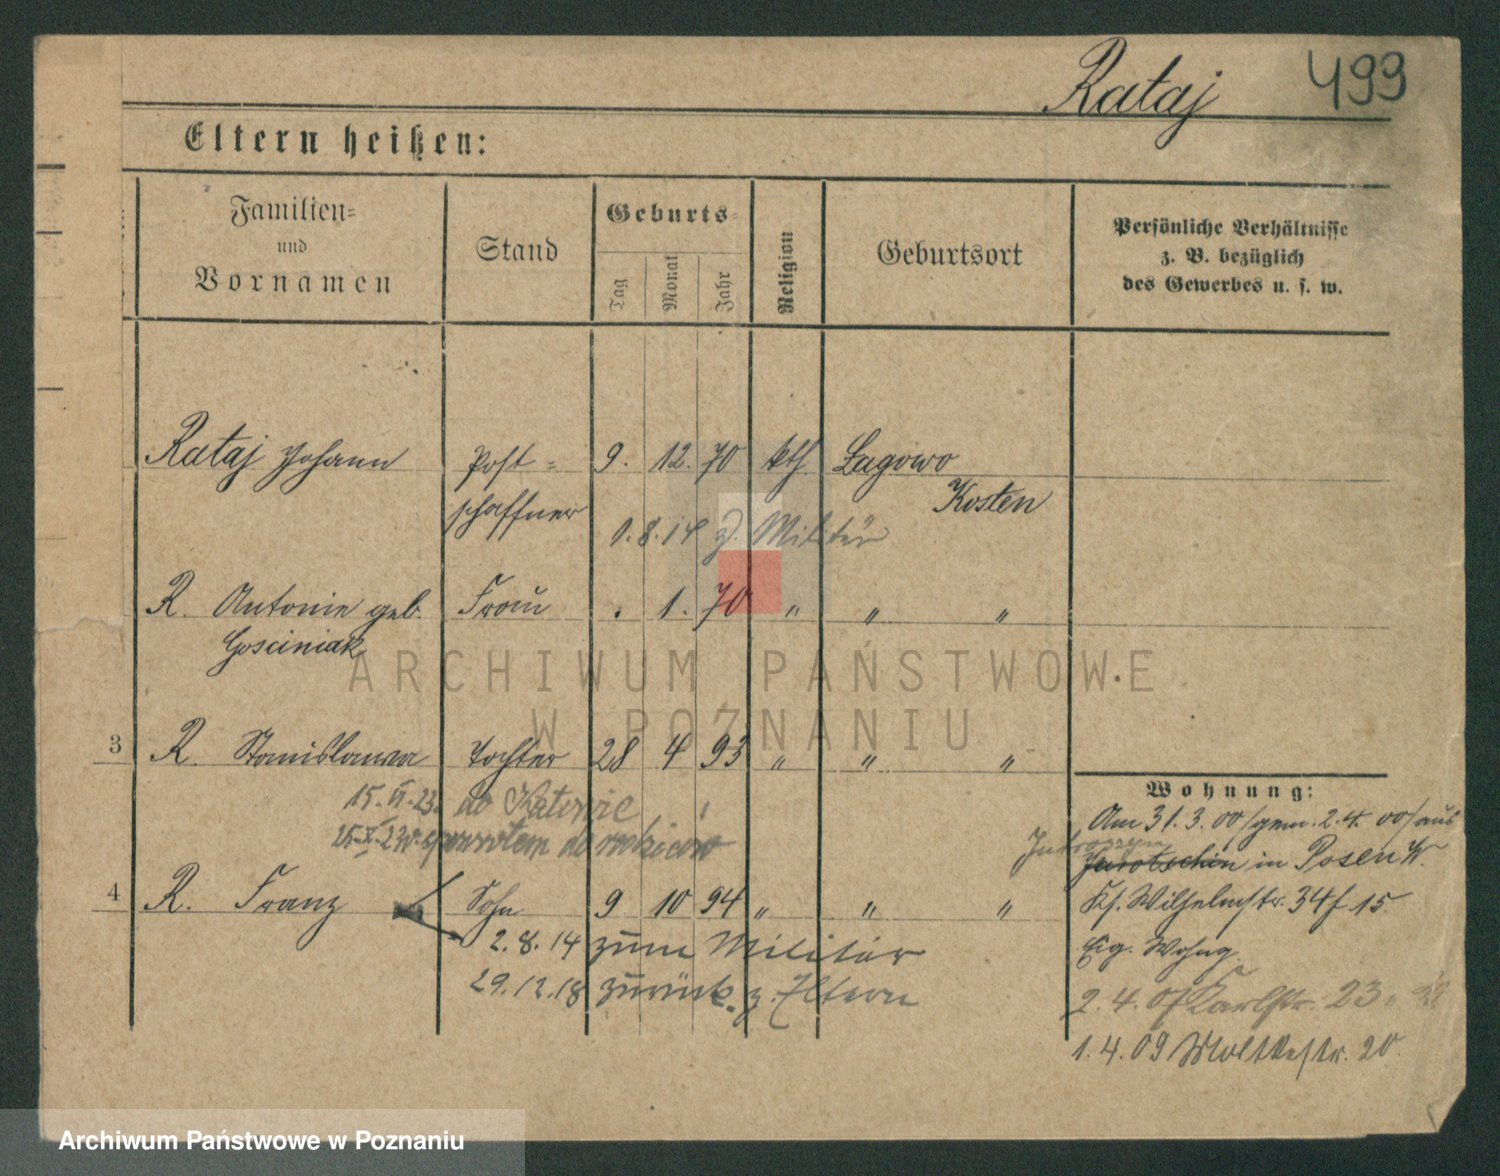 Rataj 499
Eltern heißen:
Familien=
und
Vornamen
Stand
Geburts=
Tag
Monat
Jahr
Religion
Geburtsort
Persönliche Verhältnisse
z. B. bezüglich
des Gewerbes u. s. w.
Rataj Johann Post= 9. 12. 70 kth. Lagowo
schaffner Kosten
1.8.14 z. Militär
R. Antonie geb. Frau . 1. 70 " " "
Gosciniak
3 R. Stanislawa Tochter 28 4 93 " " "
15.VI.23. do Katowic
z powrotem do rodziców
4 R. Franz Sohn 9 10 94 " " "
2.8.14 zum Militär
29.12.18 zurück z. Eltern
Wohnung:
Am 31.3.00/gem. 2.4.00/aus
Jarotschin in Posen W.
Ks. Wilhelmstr. 34f 15.
Eig. Wohng.
2.4.07 Karlstr. 23
1.4.09 Moltkestr. 20.
ARCHIWUM PAŃSTWOWE
W POZNANIU
Archiwum Państwowe w Poznaniu